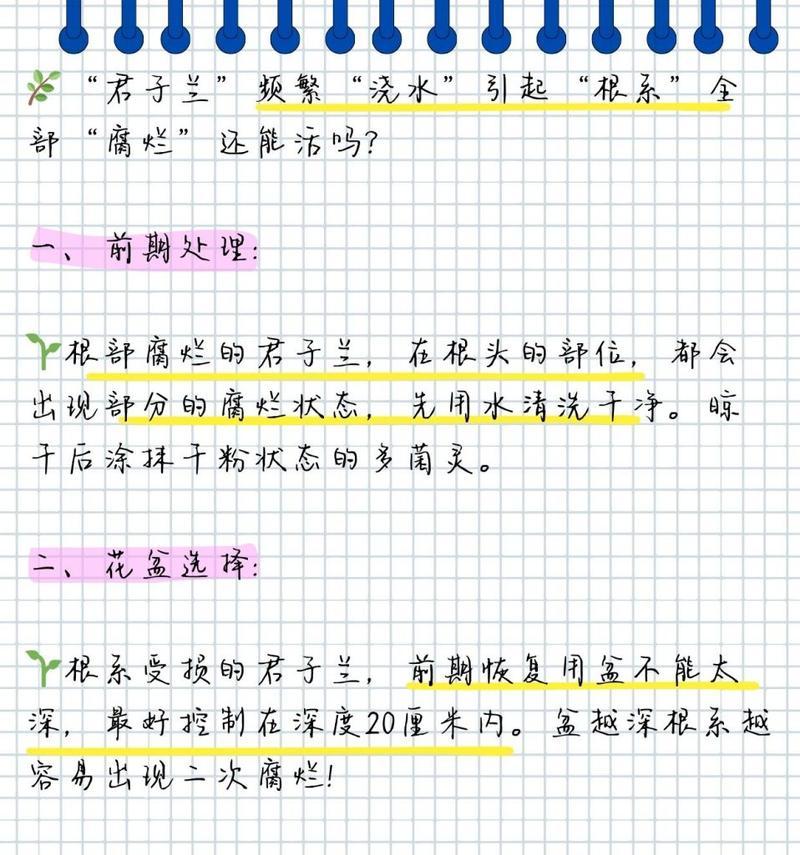 “君子兰”频繁“浇水”引起“根系”全
部“腐烂”还能活吗?
一、前期处理:
根部腐烂的君子兰，在根头的部位，都会
出现部分的腐烂状态，先用水清洗干净。晾
干后涂抹干粉状态的多菌灵。
二、花盆选择:
根系受损的君子兰，前期恢复用盆不能太
深，最好控制在深度20厘米内。盆越深根系越
容易出现二次腐烂!